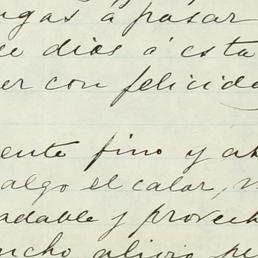 ngas á pasar
e dios á esta
er con felicida
ente fino y ab
algo el calor,
adable y provech
ucho alivio pe